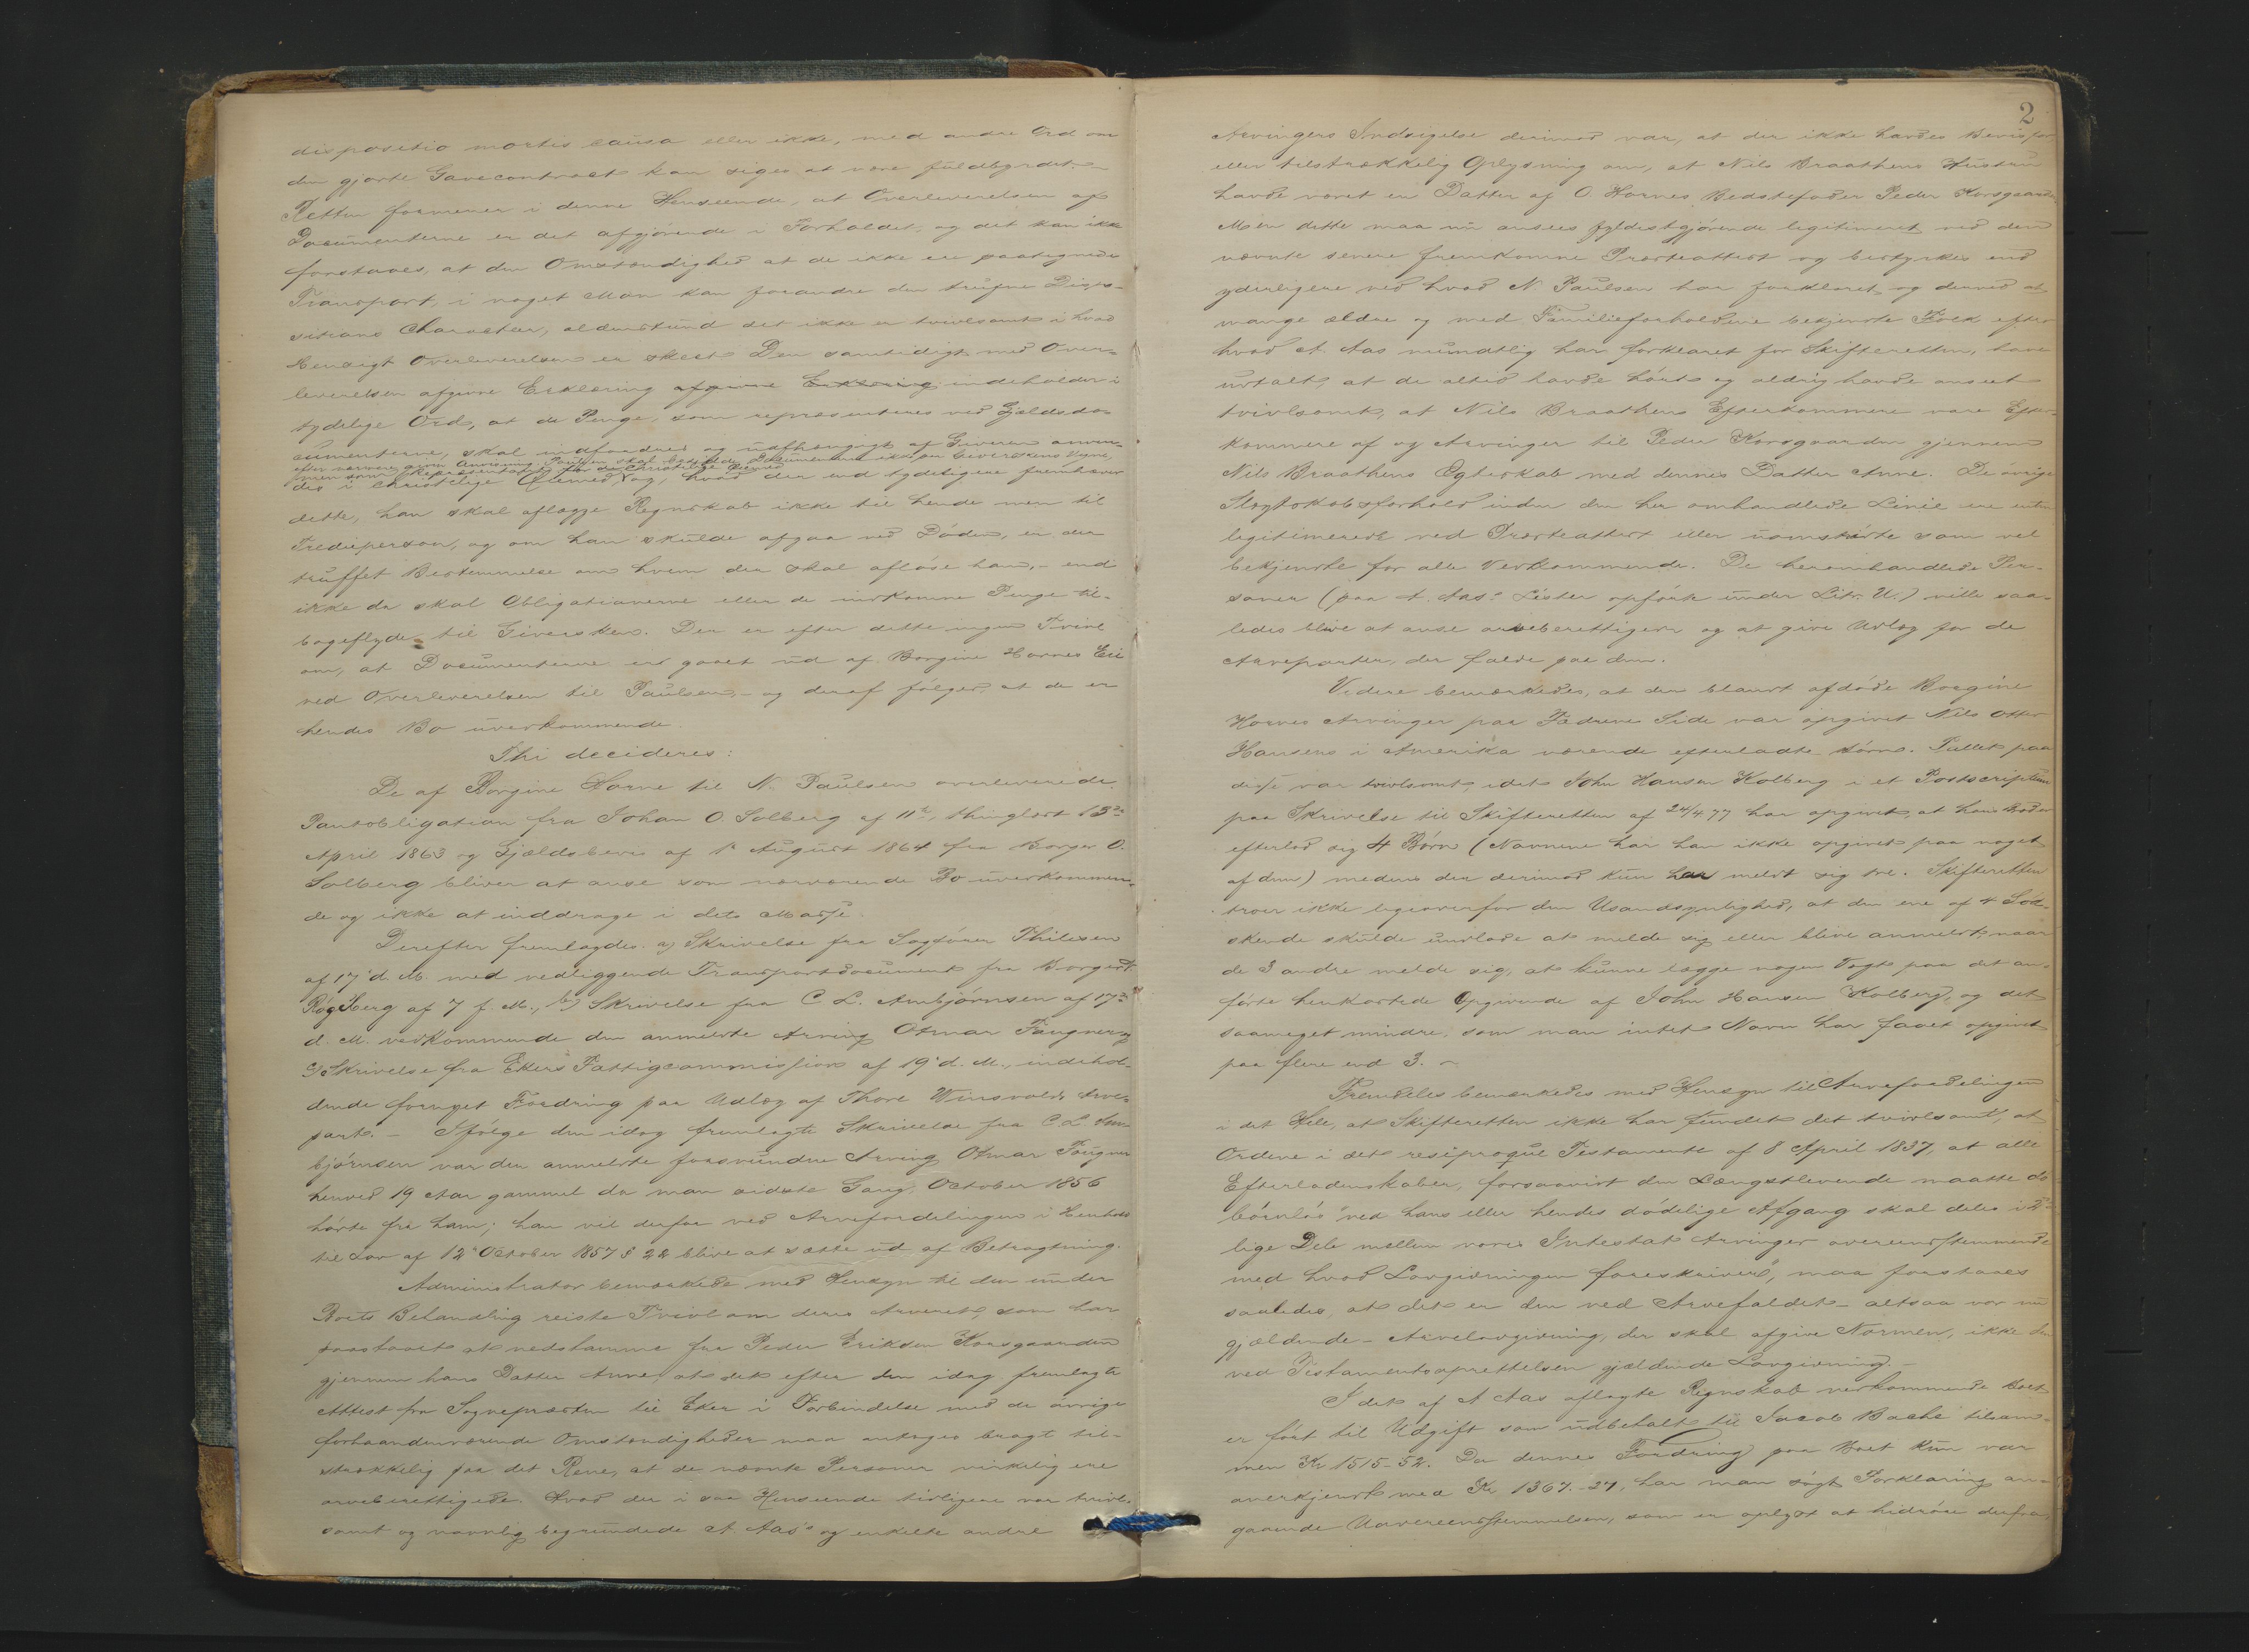 dispositio mortis causa eller ikke, med andre Ord om
den gjorte Gavecontract kan siges at være fuldbyrdet. –
Retten formener i denne Henseende, at Overleverelsen af
Documenterne er det afgjørende i Forholdet, og det kan ikke
forstaaes, at den Omstændighed at de ikke ere paategnede
Transport, i noget Mon kan forandre den trufne Dispo-
sitions Character, aldenstund det ikke er tvivlsomt i hvad
Henseigt Overleverelsen er skeet. Den samtidigt med Over-
leverelsen afgivne Erklæring afgivne Erklæring indeholder i
tydelige Ord, at de Penge, som repræsenteres ved Gjeldsdo-
cumenterne, skal indfordres og uafhængigt af Giveren anven-
efter nærmere given Anvisning. Paulsen skal besidde Documenterne ikke paa Giverskens Vegne,
men som Repræsentant for de christelige Øiemed
des i christelige Øiemed, og, hvad der end tydeligere fremhæver
dette, han skal aflægge Regnskab ikke til hende men til
Trediepersoner, og om han skulde afgaa ved Døden, er der
truffet Bestemmelse om hvem der skal afløse ham, – end
ikke da skal Obligationerne eller de indkomne Penge til-
bageflyde til Giversken. Der er efter dette ingen Tvivl
om, at Documenterne ere gaaet ud af Borgine Hornes Eie
ved Overleverelsen til Paulsen, – og deraf følger, at de er
hendes Bo uvedkommende.
Thi decideres:
De af Borgine Horne til N. Paulsen overleverede
Pantobligation fra Johan O. Solberg af 11te, thinglæst 13de
April 1863 og Gjældsbevis af 1 August 1864 fra Borger O.
Solberg bliver at anse som nærværende Bo uvedkommen-
de og ikke at inddrage i dets Masse.
Derefter fremlagdes a) Skrivelse fra Sagfører Thilesen
af 17 d. M. med vedliggende Transportdocument fra Borgert
Røgeberg af 7 f. M., b) Skrivelse fra C. L. Ambjørnsen af 17de
d. M. vedkommende den anmeldte Arving Otmar Faugner,
c) Skrivelse fra Ekers Fattigcommission af 19 d. M., indehol-
dende fornyet Fordring paa Udlæg af Thore Winsvolds Arve-
part. – Ifølge den idag fremlagte Skrivelse fra C. L. Am-
bjørnsen var den anmeldte forsvundne Arving Otmar Faugner
henved 19 Aar gammel da man sidste Gang, October 1856
hørte fra ham; han vil derfor ved Arvefordelingen i Henhold
til Lov af 12 October 1857 § 22 blive at sætte ud af Betragtning.
Administrator bemærkede med Hensyn til den under
Boets Behandling reiste Tvivl om deres Arveret, som har
paastaaet at nedstamme fra Peder Eriksen Korsgaarden
gjennem hans Datter Anne, at det efter den idag fremlagte
Attest fra Sognepræsten til Eker i Forbindelse med de øvrige
forhaandenværende Omstændigheder maa antages bragt til-
strækkelig paa det Rene, at de nævnte Personer virkelig ere
arveberettigede. Hvad der i saa Henseende tidligere var tvivl-
somt og navnlig begrundede A. Aas' og enkelte andre
2
Arvingers Indsigelse derimod var, at der ikke havdes Bevis for
eller tilstrækkelig Oplysning om, at Nils Braathens Hustru
havde været en Datter af O. Hornes Bedstefader Peder Korsgaarden
Men dette maa nu ansees fyldestgjørende legitimeret ved den
nævnte senere fremkomne Præsteattest og bestyrkes end
yderligere ved hvad N. Paulsen har forklaret og derved at
mange ældre og med Familieforholdene bekjendte Folk efter
hvad A. Aas mundtlig har forklaret for Skifteretten, have
udtalt, at de altid havde hørt og aldrig havde anseet
tvivlsomt, at Nils Braathens Efterkommere vare Efter-
kommere af og Arvinger til Peder Korsgaarden gjennem
Nils Braathens Ægteskab med dennes Datter Anne. De øvrige
Slægtskabsforhold inden den her omhandlede Linie ere enten
legitimerede ved Præsteattest eller uomstridte som vel
bekjendte for alle Vedkommende. De heromhandlede Per-
soner (paa A. Aas's Lister opførte under Litr. U.) ville saa-
ledes blive at anse arveberettigede og at give Udlæg for de
Arveparter, der falde paa dem.
Videre bemærkedes, at der blandt afdøde Borgine
Hornes Arvinger paa Fædrene Side var opgivet Nils Otter
Hansens i Amerika værende efterladte Børn. Tallet paa
disse var tvivlsomt, idet John Hansen Kolberg i et Postscriptum
paa Skrivelse til Skifteretten af 24/4 77 har opgivet, at hans Broder
efterlod sig 4 Børn (Navnene har han ikke opgivet paa noget
af dem) medens der derimod kun har meldt sig tre. Skifteretten
troer ikke ligeoverfor den Usandsynlighed, at den ene af 4 Sød-
skende skulde undlade at melde sig eller blive anmeldt, naar
de 3 andre melde sig, at kunne lægge nogen Vægt paa det an-
førte henkastede Opgivende af John Hansen Kolberg, og det
saameget mindre, som man intet Navn har faaet opgivet
paa flere end 3. –
Fremdeles bemærkedes med Hensyn til Arvefordelingen
i det Hele, at Skifteretten ikke har fundet det tvivlsomt, at
Ordene i det resiproque Testamente af 8 April 1837, at alle
Efterladenskaber, forsaavidt den Længstlevende maatte dø
børnløs "ved hans eller hendes dødelige Afgang skal deles i 2de
lige Dele mellem vores Intestat Arvinger overensstemmende
med hvad Lovgivningen foreskriver", maa forstaaes
saaledes, at det er den ved Arvefaldet – altsaa vor nu
gjældende – Arvelovgivning, der skal afgive Normen, ikke den
ved Testamentsoprettelsen gjældende Lovgivning. –
I det af A Aas aflagte Regnskab vedkommende Boet
er ført til Udgift som udbetalt til Jacob Bache tilsam-
men Kr 1515-52. Da dennes Fordring paa Boet kun var
anerkjendt med Kr 1367.-27, har man søgt Forklaring an-
gaaende Uoverensstemmelsen, som er oplyst at hidrøre derfra,